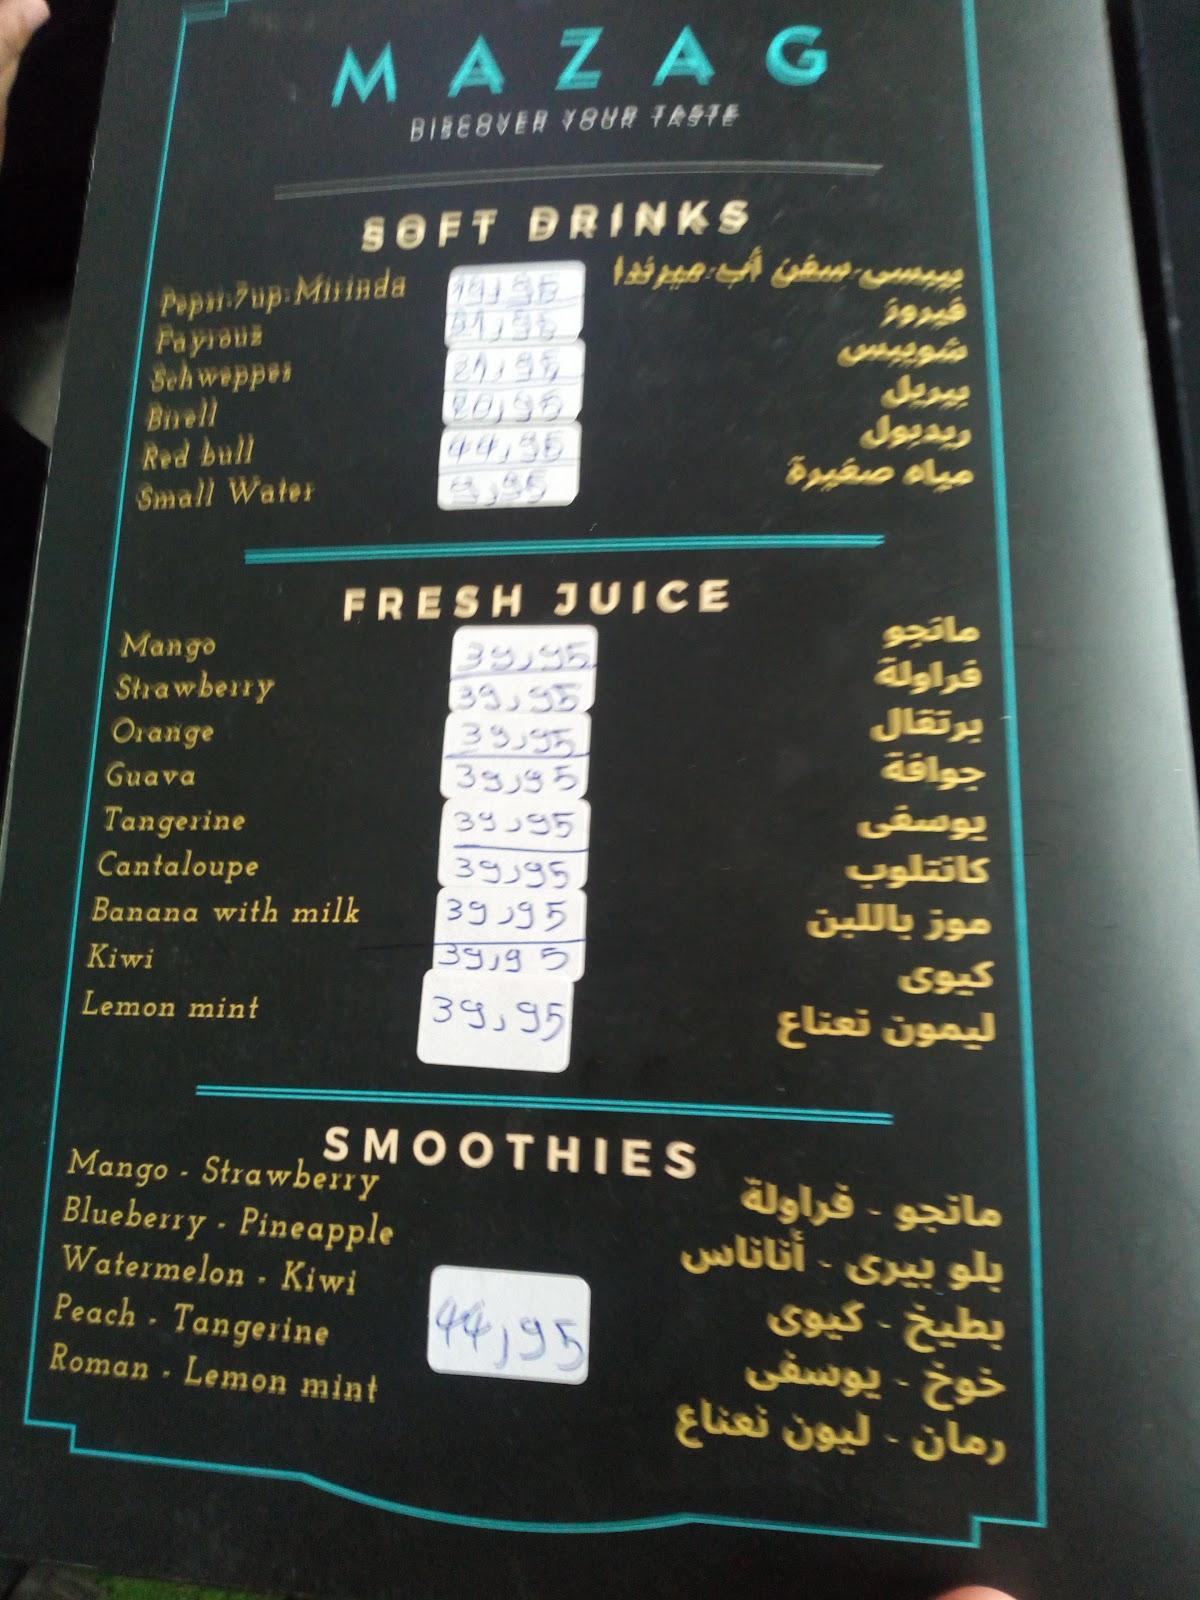 MAZAG
DISCOVER YOUR TASTE
SOFT DRINKS
Pepsi-7up-Mirinda 19,95 بيبسى-سفن أب-ميرندا
Fayrouz 21,95 فيروز
Schweppes 21,95 شويبس
Birell 20,95 بيريل
Red bull 44,95 ريدبول
Small Water 9,95 مياه صغيرة
FRESH JUICE
Mango 39,95 مانجو
Strawberry 39,95 فراولة
Orange 39,95 برتقال
Guava 39,95 جوافة
Tangerine 39,95 يوسفى
Cantaloupe 39,95 كانتلوب
Banana with milk 39,95 موز باللبن
Kiwi 39,95 كيوى
Lemon mint 39,95 ليمون نعناع
SMOOTHIES
Mango - Strawberry مانجو - فراولة
Blueberry - Pineapple بلو بيرى - أناناس
Watermelon - Kiwi 44,95 بطيخ - كيوى
Peach - Tangerine خوخ - يوسفى
Roman - Lemon mint رمان - ليون نعناع